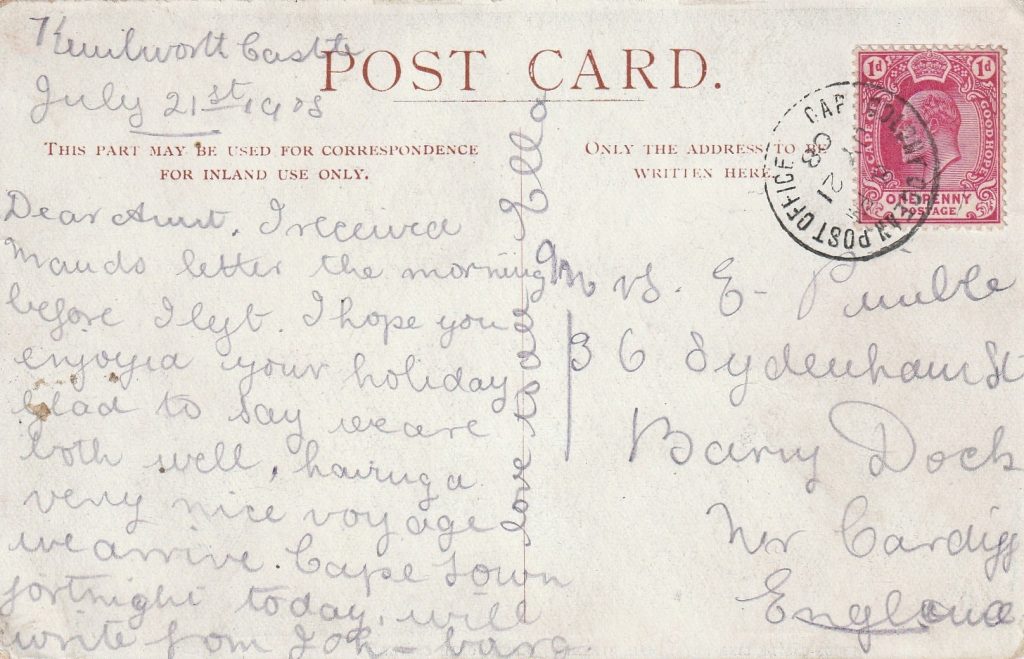 Kenilworth Castle
July 21st 1908
POST CARD.
THIS PART MAY BE USED FOR CORRESPONDENCE
FOR INLAND USE ONLY.
Dear Aunt, I received
Mauds letter the morning
before I left. I hope you
enjoyed your holiday
glad to say we are
both well, having a
very nice voyage
we arrive Cape Town
fortnight today, will
write from Joh-burg
love to all Ella
ONLY THE ADDRESS TO BE
WRITTEN HERE.
1d 1d
CAPE OF GOOD HOPE
ONE PENNY
POSTAGE
OCEAN POST OFFICE
CAPE COLONY
08
Mrs. E. Pumble
36 Sydenham St
Barry Dock
Nr Cardiff
England